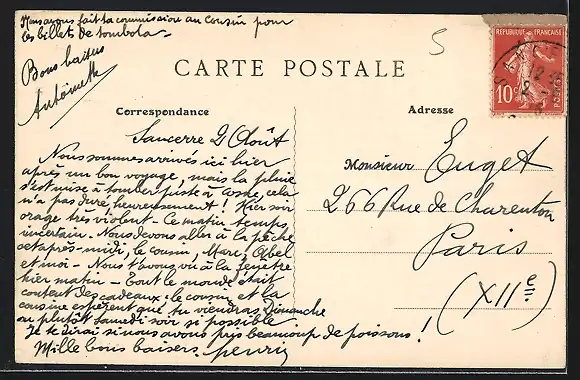 Nous avons fait ta commission au cousin pour
les billet de tombola -
Bons baisers
Antoinette
5
CARTE POSTALE
Correspondance
Adresse
REPUBLIQUE FRANÇAISE
10c
POSTES
SANCERRE
12
2
Sancerre 2 Août
Nous sommes arrivés ici hier
après un bon voyage, mais la pluie
s'est mise à tomber juste à Cosne, cela
n'a pas duré heureusement! Hier soir
orage très violent - Ce matin temps
incertain. Nous devons aller à la pêche
cet après-midi, le cousin, Marc, Abel
et moi - Nous t'avons vu à la fenêtre
hier matin - Tout le monde était
content des cadeaux - le cousin et la
cousine espèrent que tu viendras Dimanche
ou plutôt samedi soir si possible
Je te dirai si nous avons pris beaucoup de poissons!
Mille bons baisers Henri
Monsieur Euget
266 Rue de Charenton
Paris
(XIIe)